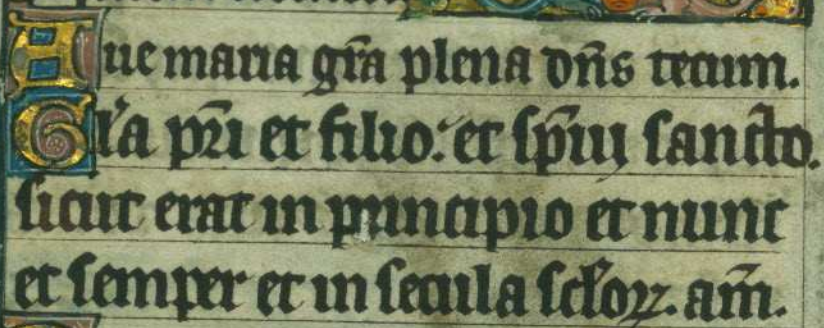 Aue maria gr̄a plena dn̄s tecum.
Gl'a pr̄i et filio. et sp̄ui sancto.
sicut erat in principio et nunc
et semper et in secula sc̄loꝝ. am̄.